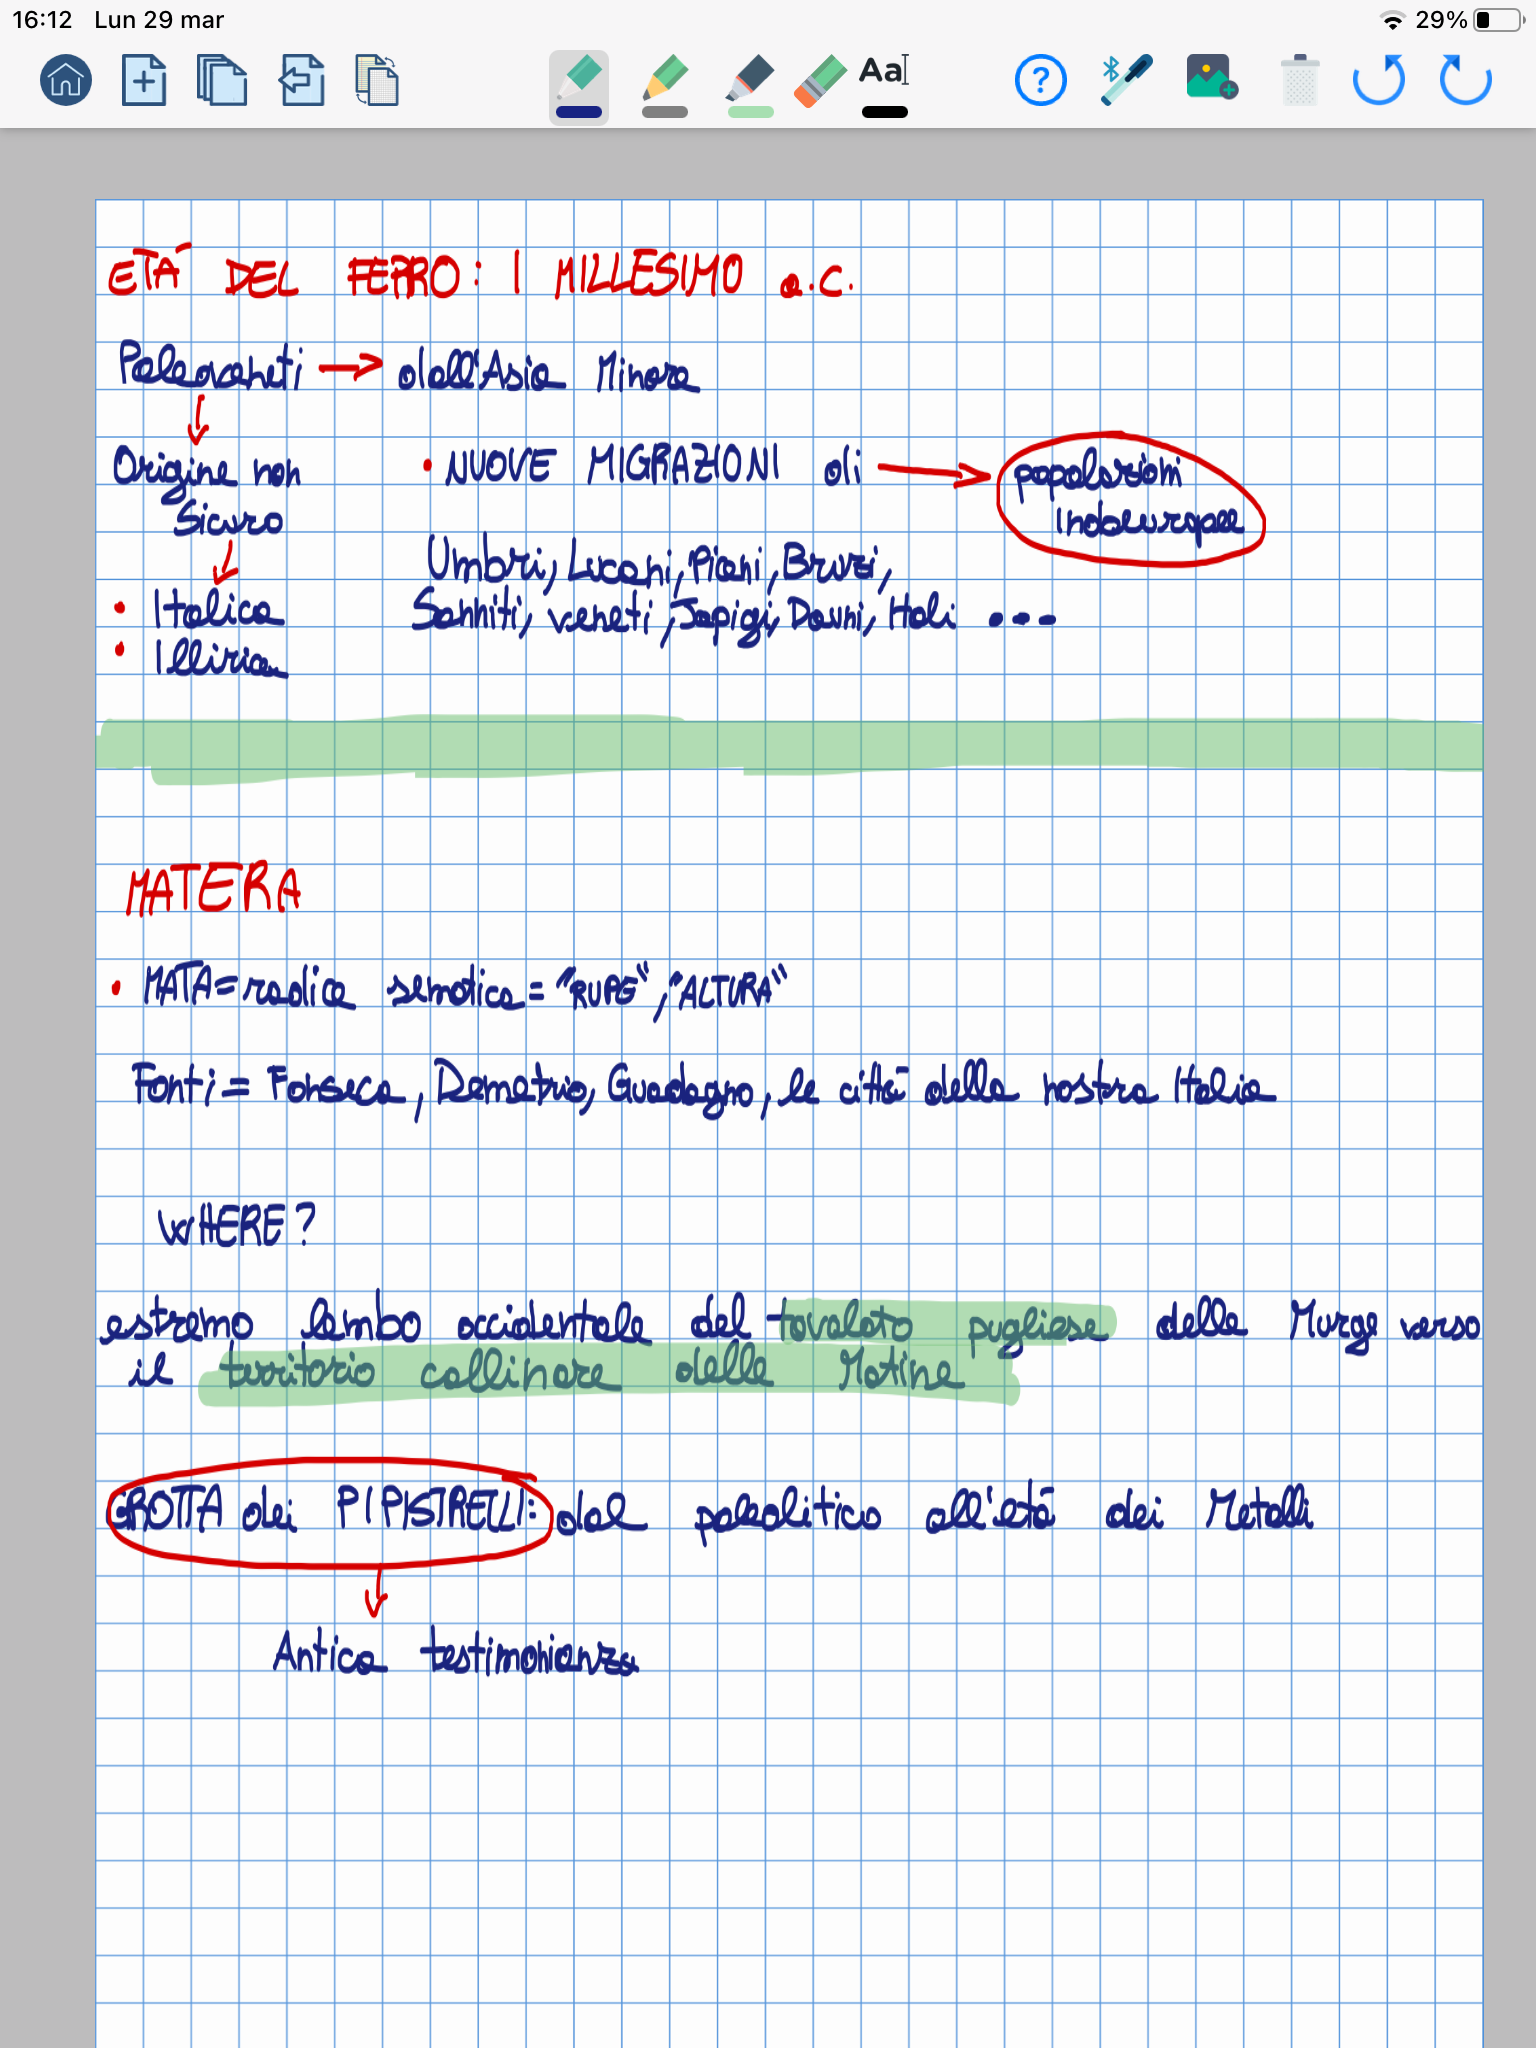 16:12 Lun 29 mar 29%
Aa
ETÀ DEL FERRO: I MILLESIMO a.C.
Paleoveneti → dall'Asia Minore
Origine non • NUOVE MIGRAZIONI di → popolazioni
Sicuro indoeuropee
Umbri, Lucani, Piceni, Bruzi,
• Italica Sanniti, veneti, Japigi, Dauni, Itali •••
• Illirica
MATERA
• MATA = radice semotica = "RUPE", "ALTURA"
Fonti = Fonseca, Demetrio, Guadagno, le città della nostra Italia
WHERE?
estremo lembo occidentale del tavolato pugliese delle Murge verso
il territorio collinare delle Matine
GROTTA dei PIPISTRELLI: dal paleolitico all'età dei Metalli
Antica testimonianza